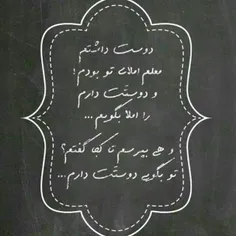 دوست داشتم
معلم املای تو بودم!
و دوستت دارم
را املا بگویم...
و هی بپرسم تا کجا گفتم؟
تو بگویی دوستت دارم...